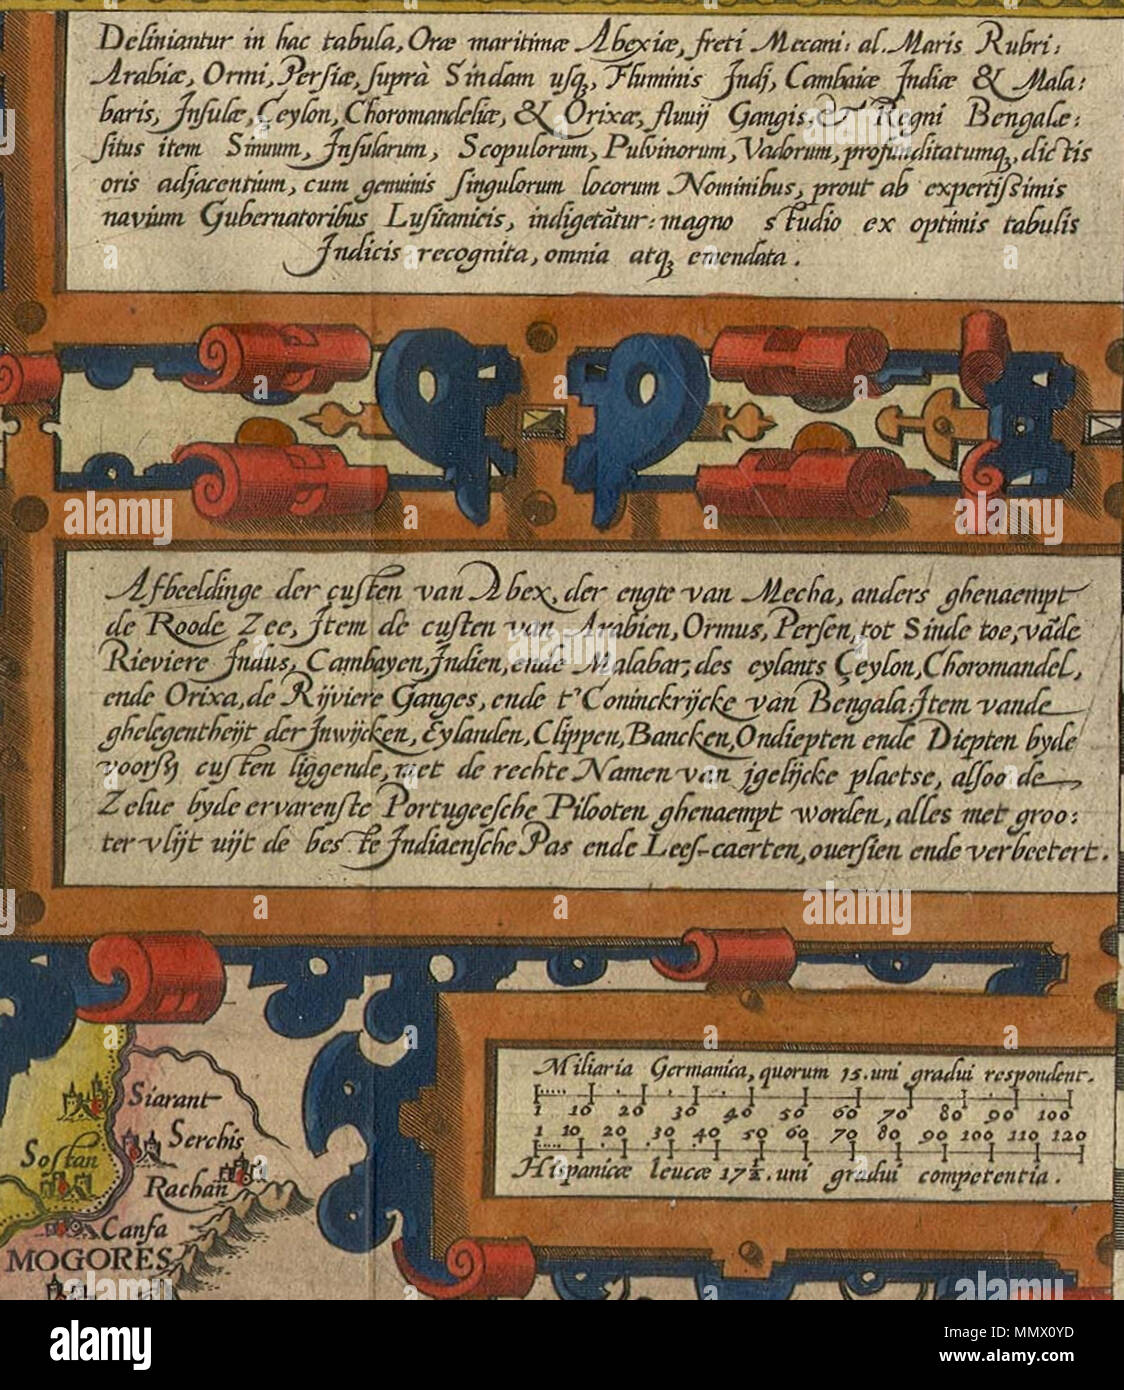 Deliniantur in hac tabula, Oræ maritimæ Abexiæ, freti Mecani: al. Maris Rubri:
Arabiæ, Ormi, Persiæ, suprà Sindam usqꜟ, Fluminis Indj, Cambaiæ Indiæ & Mala:
baris, Insulæ, Çeylon, Choromandeliæ, & Orixæ, fluuij Gangis, & Regni Bengalæ:
situs item Sinuum, Insularum, Scopulorum, Pulvinorum, Vadorum, profunditatumqꜟ, dictis
oris adjacentium, cum genuinis singulorum locorum Nominibus, prout ab expertissimis
navium Gubernatoribus Lusitanicis, indigetãtur: magno studio ex optimis tabulis
Indicis recognita, omnia atqꜟ emendata.
Afbeeldinge der custen van Abex, der engte van Mecha, anders ghenaempt
de Roode Zee, Item de custen van Arabien, Ormus, Persen, tot Sinde toe, vãde
Rieviere Indus, Cambayen, Indien, ende Malabar, des eylants Çeylon, Choromandel,
ende Orixa, de Rijviere Ganges, ende t'Coninckrijcke van Bengala: Item vande
ghelegentheijt der Inwijcken, Eylanden, Clippen, Bancken, Ondiepten ende Diepten byde
custen liggende, met de rechte Namen van jgelijcke plaetse, alsoo de
Zelue byde ervarenste Portugeesche Pilooten ghenaempt worden, alles met groo:
ter vlijt uijt de beste Indiaensche Pas ende Lees-caerten, ouersien ende verbeetert.
Miliaria Germanica, quorum 15. uni gradui respondent.
1 10 20 30 40 50 60 70 80 90 100
1 10 20 30 40 50 60 70 80 90 100 110 120
Hispanicæ leucæ 17½. uni gradui competentia.
Siarant
Serchis
Sostan
Rachan
Cansa
MOGORES
alamy
Image ID: MMX0YD
www.alamy.com